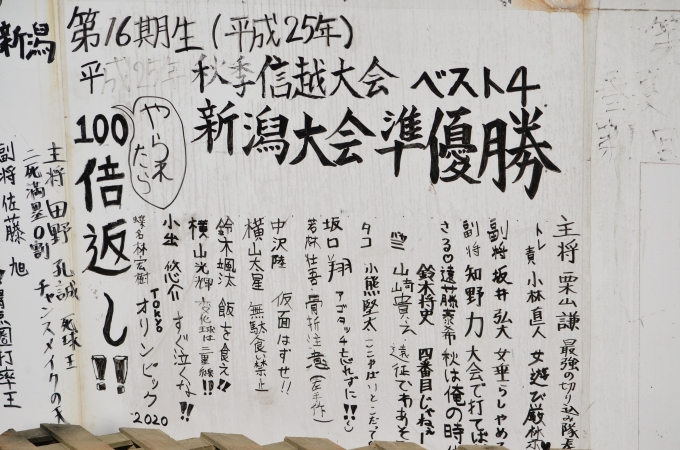 第16期生(平成25年)
平成25年 秋季信越大会 ベスト4
新潟大会準優勝
やられたら
100倍返し!!
主将 栗山謙 最強の切り込み隊
トレ責 小林直人 女遊び厳禁
副将 坂井弘大
副将 知野力 大会で打てば
さる♡遠藤泰希 秋は俺の時
鈴木将史 四番目じゃねぇー
山崎貴
タコ 小熊堅太
坂口翔 アゴタッチ忘れずに!!
若林壮吾 骨折注意
中沢陸 仮面はずせ!!
横山大星 無駄食い禁止
鈴木颯汰 飯を食え!!
横山光輝 変化球は二重
小出悠介 すぐ泣くな!!
林宏樹 TOKYO オリンピック 2020
新潟
主将 田野 死球王
二死満塁0割 チャンスメイクの
副将 佐藤 旭
圏打率王